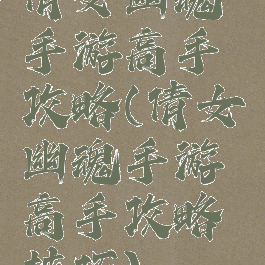 倩女幽魂
手游高手
攻略(倩女
幽魂手游
高手攻略
技巧)